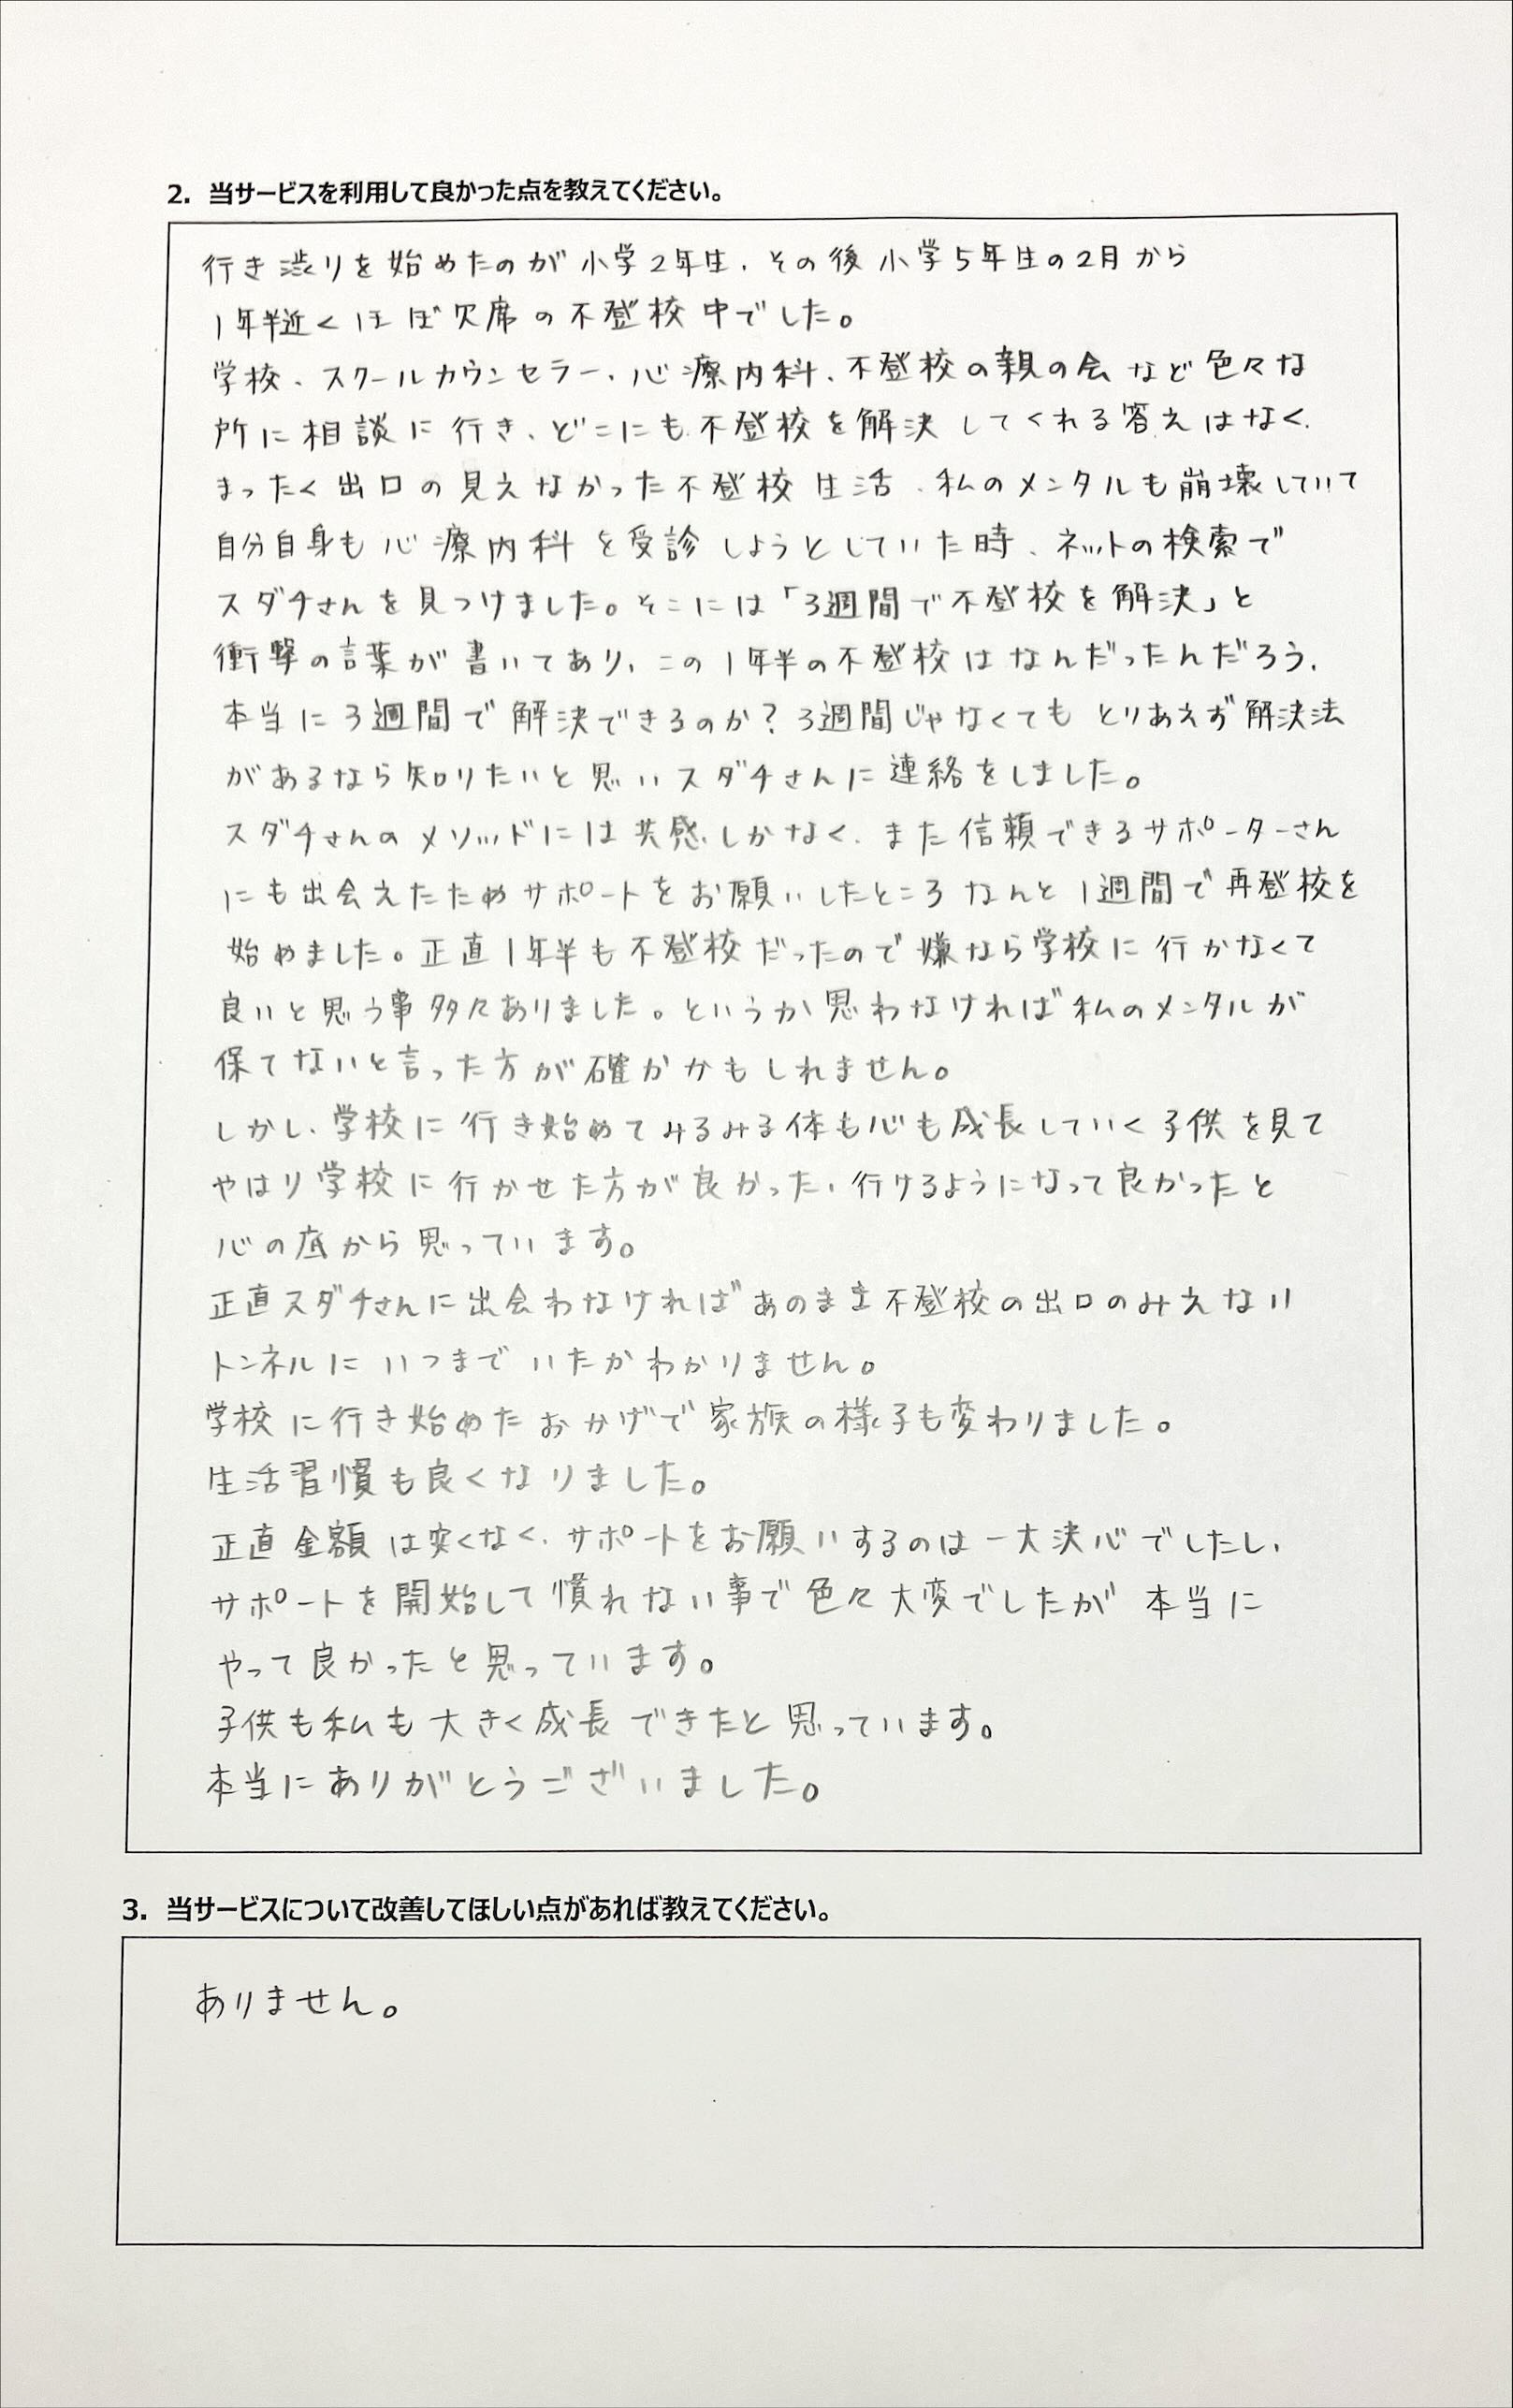 2. 当サービスを利用して良かった点を教えてください。
行き渋りを始めたのが小学2年生、その後小学5年生の2月から
1年半近くほぼ欠席の不登校中でした。
学校、スクールカウンセラー、心療内科、不登校の親の会など色々な
所に相談に行き、どこにも不登校を解決してくれる答えはなく、
まったく出口の見えなかった不登校生活、私のメンタルも崩壊していて
自分自身も心療内科を受診しようとしていた時、ネットの検索で
スダチさんを見つけました。そこには「3週間で不登校を解決」と
衝撃の言葉が書いてあり、この1年半の不登校はなんだったんだろう、
本当に3週間で解決できるのか?3週間じゃなくてもとりあえず解決法
があるなら知りたいと思いスダチさんに連絡をしました。
スダチさんのメソッドには共感しかなく、また信頼できるサポーターさん
にも出会えたためサポートをお願いしたところなんと1週間で再登校を
始めました。正直1年半も不登校だったので嫌なら学校に行かなくて
良いと思う事多々ありました。というか思わなければ私のメンタルが
保てないと言った方が確かかもしれません。
しかし、学校に行き始めてみるみる体も心も成長していく子供を見て
やはり学校に行かせた方が良かった、行けるようになって良かったと
心の底から思っています。
正直スダチさんに出会わなければあのまま不登校の出口のみえない
トンネルにいつまでいたかわかりません。
学校に行き始めたおかげで家族の様子も変わりました。
生活習慣も良くなりました。
正直金額は安くなく、サポートをお願いするのは一大決心でしたし、
サポートを開始して慣れない事で色々大変でしたが本当に
やって良かったと思っています。
子供も私も大きく成長できたと思っています。
本当にありがとうございました。
3. 当サービスについて改善してほしい点があれば教えてください。
ありません。